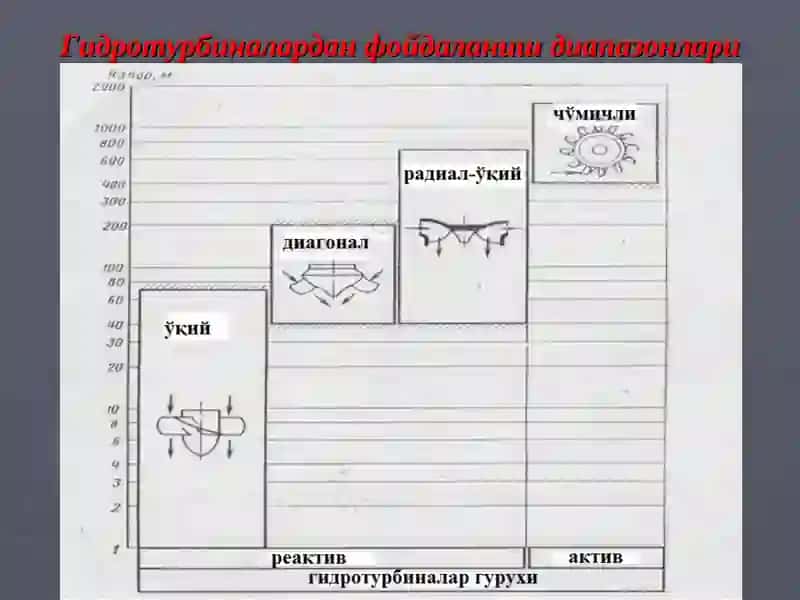 Гидротурбиналардан фойдаланиш диапазонлари
Напор, м
2000
1000
800
600
400
300
200
100
80
60
40
30
20
10
8
6
4
3
2
1
чўмичли
радиал-ўқий
диагонал
ўқий
реактив
актив
гидротурбиналар гурухи